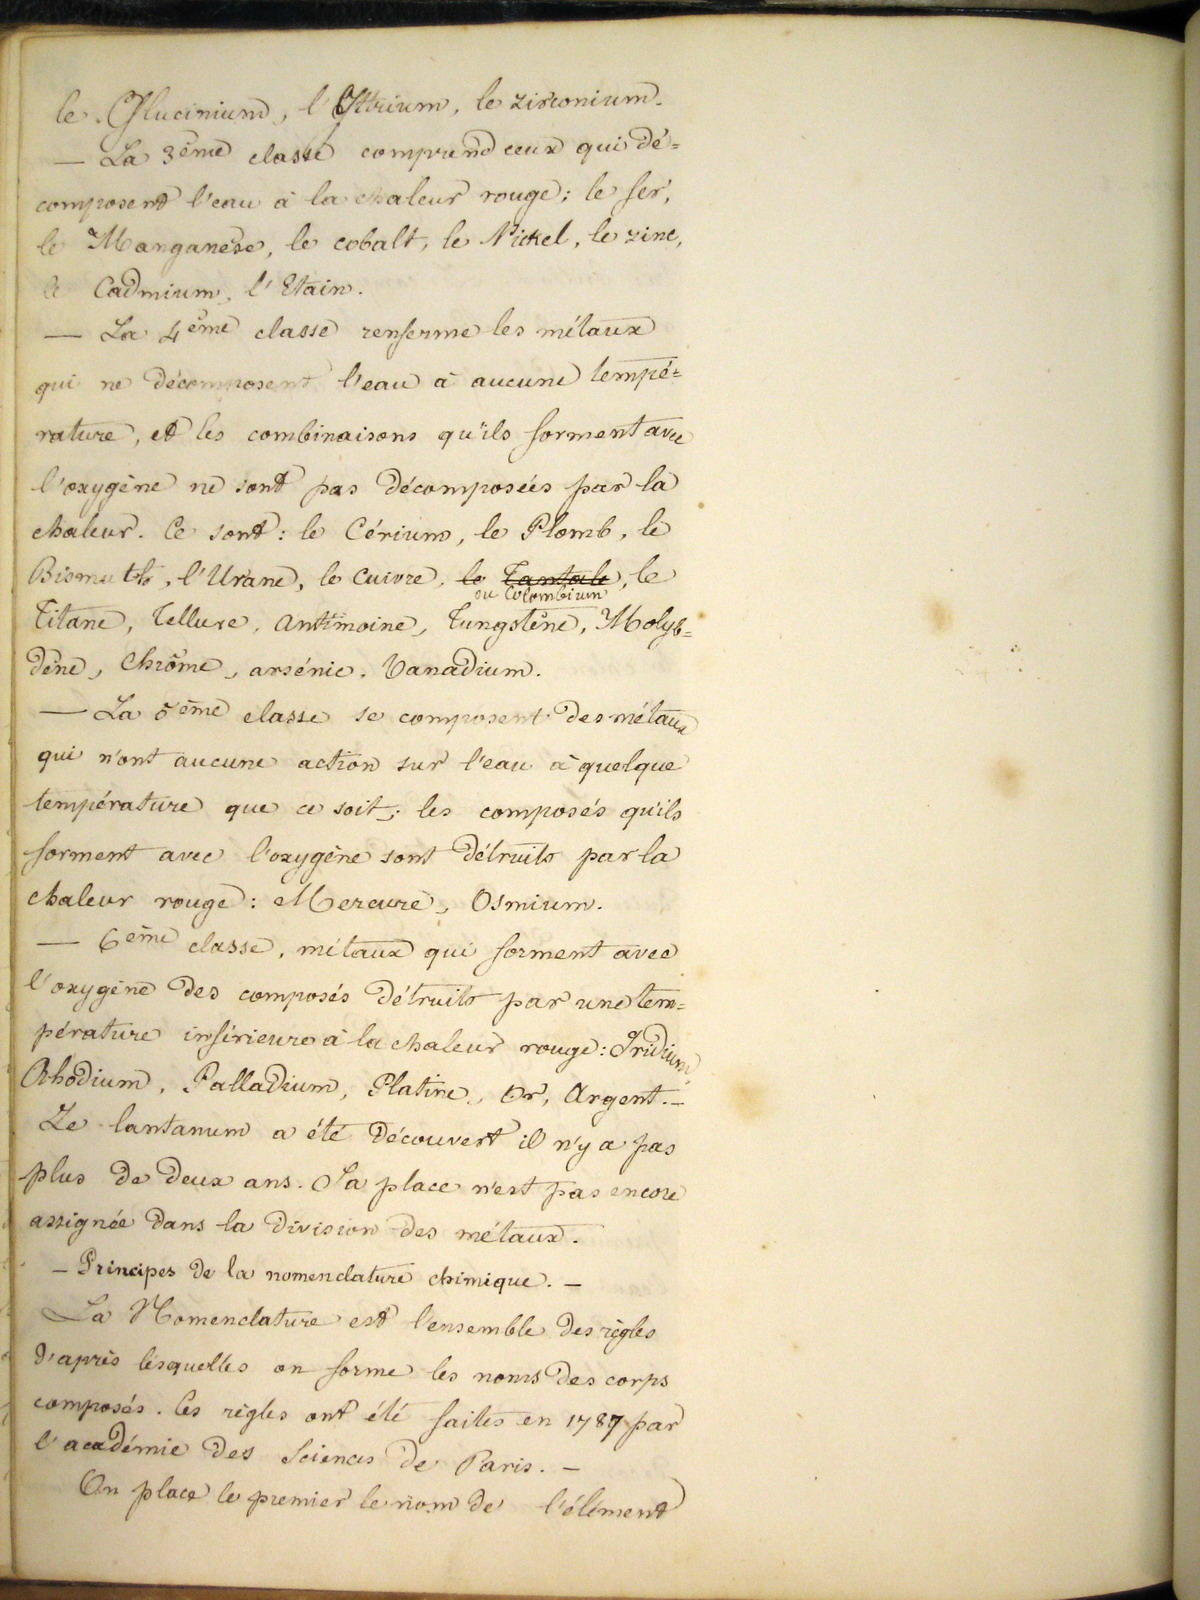 le Glucinium, l'Yttrium, le zirconium.
— La 3ème classe comprend ceux qui dé=
composent l'eau à la chaleur rouge: le fer,
le Manganèse, le cobalt, le Nickel, le zinc,
le Cadmium, l'Etain.
— La 4ème classe renferme les métaux
qui ne décomposent l'eau à aucune tempé=
rature, et les combinaisons qu'ils forment avec
l'oxygène ne sont pas décomposées par la
chaleur. Ce sont: le Cérium, le Plomb, le
Bismuth, l'Urane, le Cuivre, le Tantale, le
ou Colombium
Titane, Tellure, Antimoine, Tungstène, Molyb=
dène, Chrôme, arsénic, Vanadium.
— La 5ème classe se composent des métaux
qui n'ont aucune action sur l'eau à quelque
température que ce soit; les composés qu'ils
forment avec l'oxygène sont détruits par la
chaleur rouge: Mercure, Osmium.
— 6ème classe, métaux qui forment avec
l'oxygène des composés détruits par une tem=
pérature inférieure à la chaleur rouge: Iridium,
Rhodium, Palladium, Platine, Or, Argent.—
Le lantanum a été découvert il n'y a pas
plus de deux ans. Sa place n'est pas encore
assignée dans la division des métaux.
— Principes de la nomenclature chimique. —
La Nomenclature est l'ensemble des règles
d'après lesquelles on forme les noms des corps
composés. Ces règles ont été faites en 1787 par
l'académie des Sciences de Paris. —
On place le premier le nom de l'élément